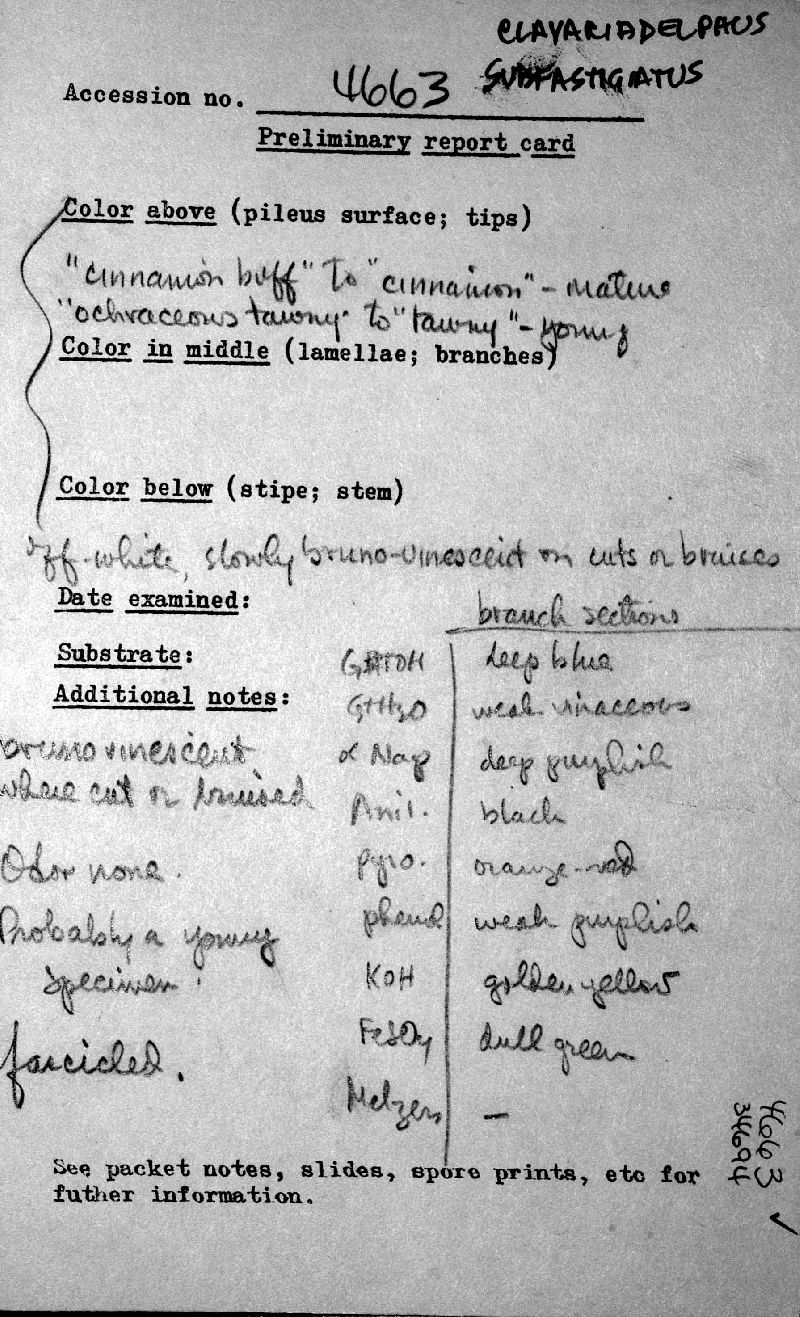 CLAVARIADELPHUS
SUBFASTIGIATUS
Accession no. 4663
Preliminary report card
Color above (pileus surface; tips)
"cinnamon buff" to "cinnamon" - mature
"ochraceous tawny" to "tawny" - young
Color in middle (lamellae; branches)
Color below (stipe; stem)
off-white, slowly bruno-vinescent on cuts or bruises
Date examined:
branch sections
Substrate:
deep blue
Additional notes:
G+H2O weak vinaceous
bruno vinescent
α Nap deep purplish
where cut or bruised
Anil. black
Odor none.
pyro. orange-red
Probably a young
phenol weak purplish
specimen.
KOH golden yellow
FeSO4 dull green
fascicled.
Melzers —
See packet notes, slides, spore prints, etc for
futher information.
4663
34694